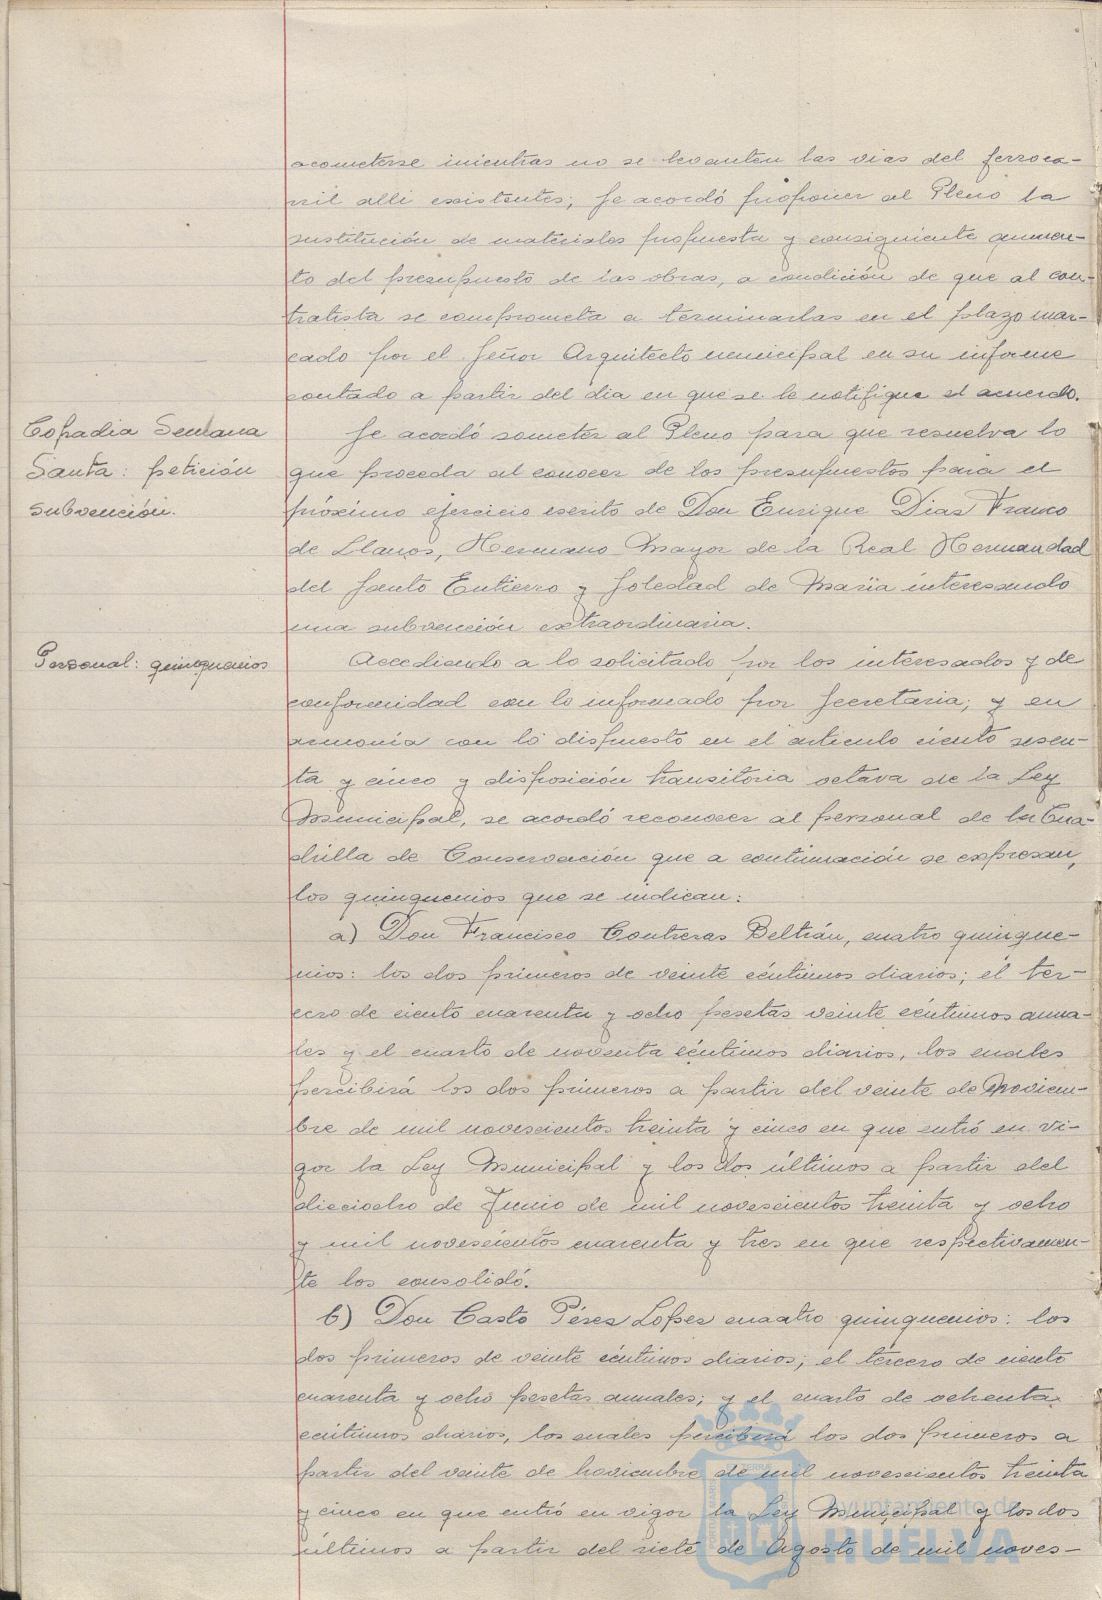 acometerse mientras no se levanten las vias del ferroca-
rril alli existentes; se acordó proponer al Pleno la
sustitución de materiales propuesta y consiguiente aumen-
to del presupuesto de las obras, a condición de que al con-
tratista se comprometa a terminarlas en el plazo mar-
cado por el Señor Arquitecto municipal en su informe
contado a partir del dia en que se le notifique el acuerdo.
Cofradia Semana
Santa: petición
subvención.
Se acordó someter al Pleno para que resuelva lo
que proceda al conocer de los presupuestos para el
próximo ejercicio escrito de Don Enrique Dias Franco
de Llanos, Hermano Mayor de la Real Hermandad
del Santo Entierro y Soledad de Maria interesando
una subvención extraordinaria.
Personal: quinquenios
Accediendo a lo solicitado por los interesados y de
conformidad con lo informado por Secretaria; y en
armonía con lo dispuesto en el articulo ciento sesen-
ta y cinco y disposición transitoria octava de la Ley
Municipal, se acordó reconocer al personal de la Cua-
drilla de Conservación que a continuación se expresan,
los quinquenios que se indican:
a) Don Francisco Contreras Beltrán, cuatro quinque-
nios: los dos primeros de veinte céntimos diarios; el ter-
cero de ciento cuarenta y ocho pesetas veinte céntimos anua-
les y el cuarto de noventa céntimos diarios, los cuales
percibirá los dos primeros a partir del veinte de Noviem-
bre de mil novescientos treinta y cinco en que entró en vi-
gor la Ley Municipal y los dos últimos a partir del
dieciocho de Junio de mil novescientos treinta y ocho
y mil novescientos cuarenta y tres en que respectivamen-
te los consolidó.
b) Don Casto Pérez Lopez cuaatro quinquenios: los
dos primeros de veinte céntimos diarios; el tercero de ciento
cuarenta y ocho pesetas anuales; y el cuarto de ochenta
céntimos diarios, los cuales percibirá los dos primeros a
partir del veinte de noviembre de mil novescientos treinta
y cinco en que entró en vigor la Ley Municipal y los dos
últimos a partir del siete de Agosto de mil noves-
Ayuntamiento de
HUELVA